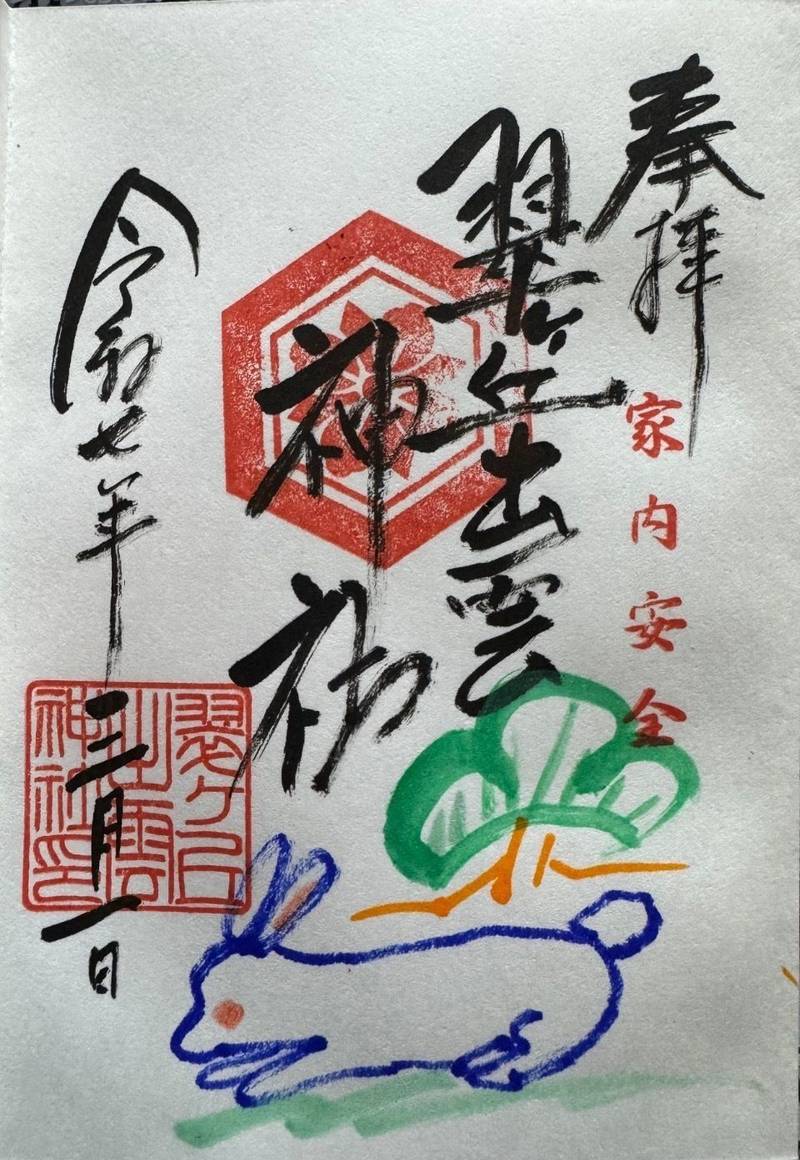 奉拝
家内安全
翠ヶ丘出雲
神社
令和七年三月一日
翠ヶ丘
出雲
神社印